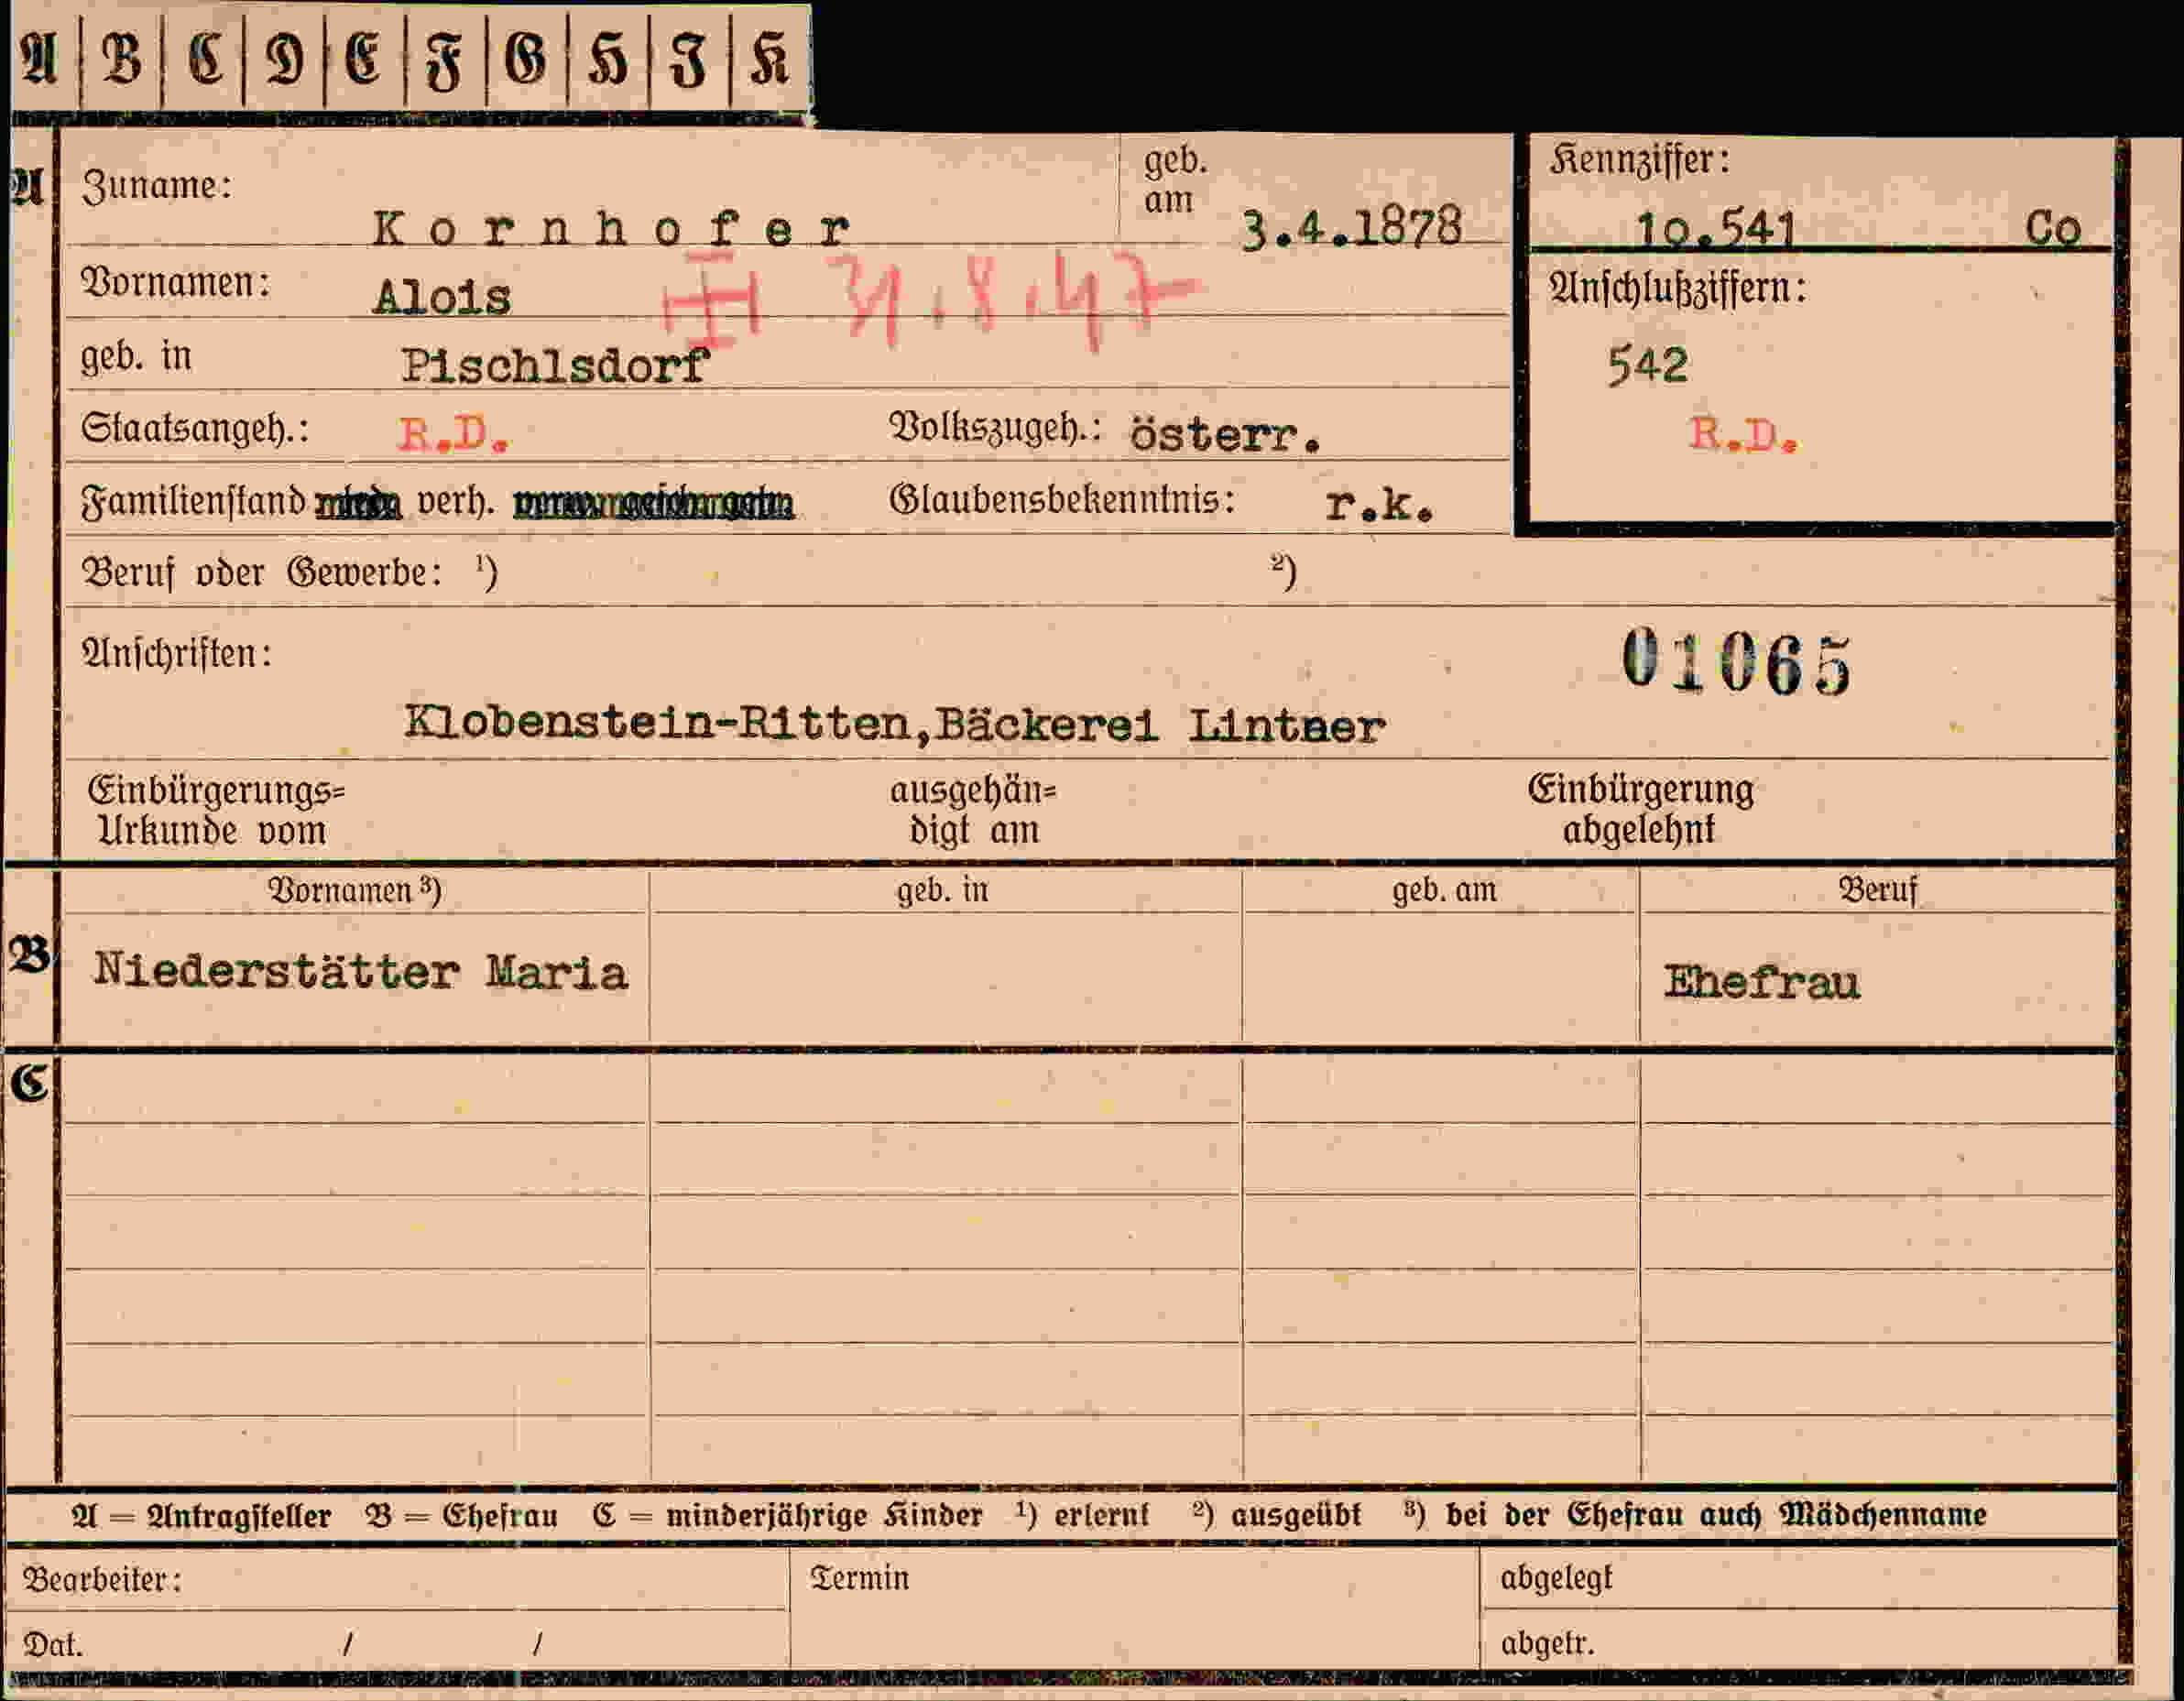 A B C D E F G H J K
A Zuname: Kornhofer geb. am 3.4.1878 Kennziffer: 10.541 Co
Vornamen: Alois Anschlußziffern:
geb. in Pischlsdorf 542
Staatsangeh.: R.D. Volkszugeh.: österr. R.D.
Familienstand verh. Glaubensbekenntnis: r.k.
Beruf oder Gewerbe: ¹) ²)
Anschriften: 01065
Klobenstein-Ritten,Bäckerei Lintner
Einbürgerungs=
Urkunde vom
ausgehän=
digt am
Einbürgerung
abgelehnt
Vornamen ³) geb. in geb. am Beruf
B Niederstätter Maria Ehefrau
C
A = Antragsteller B = Ehefrau C = minderjährige Kinder ¹) erlernt ²) ausgeübt ³) bei der Ehefrau auch Mädchenname
Bearbeiter: Termin abgelegt
Dat. / / abgetr.